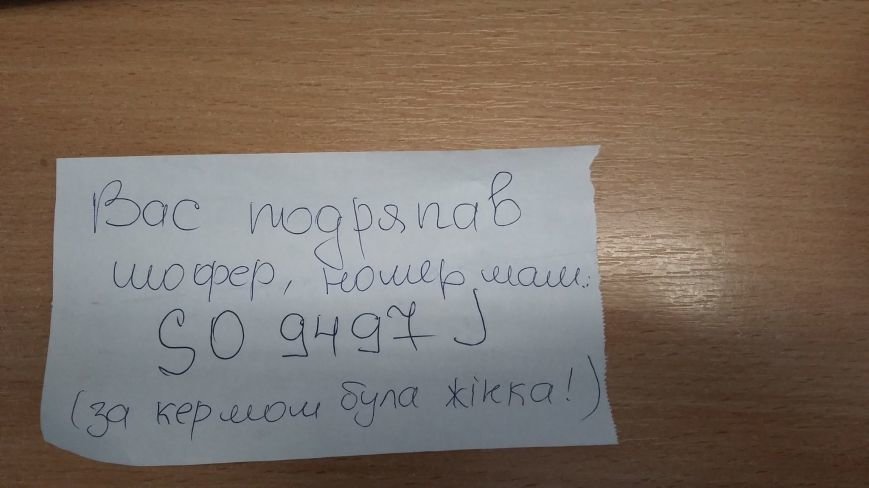 Вас подряпав
шофер, номер маш.:
SO 9497 J
(за кермом була жінка!)